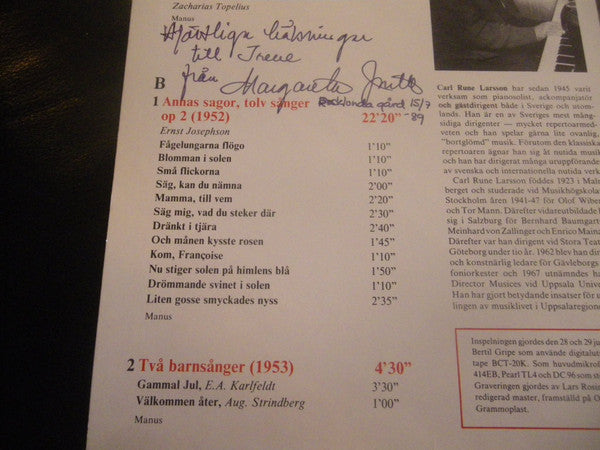 Zacharias Topelius
Manus
Hjärtliga hälsningar
till Irene
från Margareta Jonth
Rocklunda gård 15/7
-89
B
1 Annas sagor, tolv sånger
op 2 (1952) 22'20"
Ernst Josephson
Fågelungarna flögo 1'10"
Blomman i solen 1'10"
Små flickorna 1'10"
Säg, kan du nämna 2'00"
Mamma, till vem 2'20"
Säg mig, vad du steker där 2'30"
Dränkt i tjära 2'40"
Och månen kysste rosen 1'45"
Kom, Françoise 1'10"
Nu stiger solen på himlens blå 1'50"
Drömmande svinet i solen 1'10"
Liten gosse smyckades nyss 2'35"
Manus
2 Två barnsånger (1953) 4'30"
Gammal Jul, E.A. Karlfeldt 3'30"
Välkommen åter, Aug. Strindberg 1'00"
Manus
Carl Rune Larsson har sedan 1945 varit
verksam som pianosolist, ackompanjatör
och gästdirigent både i Sverige och utom-
lands. Han är en av Sveriges mest mång-
sidiga dirigenter — mycket repertoarmed-
veten och han spelar gärna lite ovanlig,
"bortglömd" musik. Förutom den klassiska
repertoaren ägnar han sig åt nutida musik
och han har dirigerat många uruppföranden
av svenska och internationella nutida verk
Carl Rune Larsson föddes 1923 i Malm
berget och studerade vid Musikhögskolan
Stockholm åren 1941-47 för Olof Wiber
och Tor Mann. Därefter vidareutbildade h
sig i Salzburg för Bernhard Baumgart
Meinhard von Zallinger och Enrico Maina
Därefter var han dirigent vid Stora Teat
Göteborg under tio år. 1962 blev han dir
och konstnärlig ledare för Gävleborgs
foniorkester och 1967 utnämndes ha
Director Musices vid Uppsala Univ
Han har gjort betydande insatser för u
lingen av musiklivet i Uppsalaregion
Inspelningen gjordes den 28 och 29 ju
Bertil Gripe som använde digitalut
tape BCT-20K. Som huvudmikrof
414EB, Pearl TL4 och DC 96 som st
Graveringen gjordes av Lars Rosin
redigerad master, framställd på O
Grammoplast.